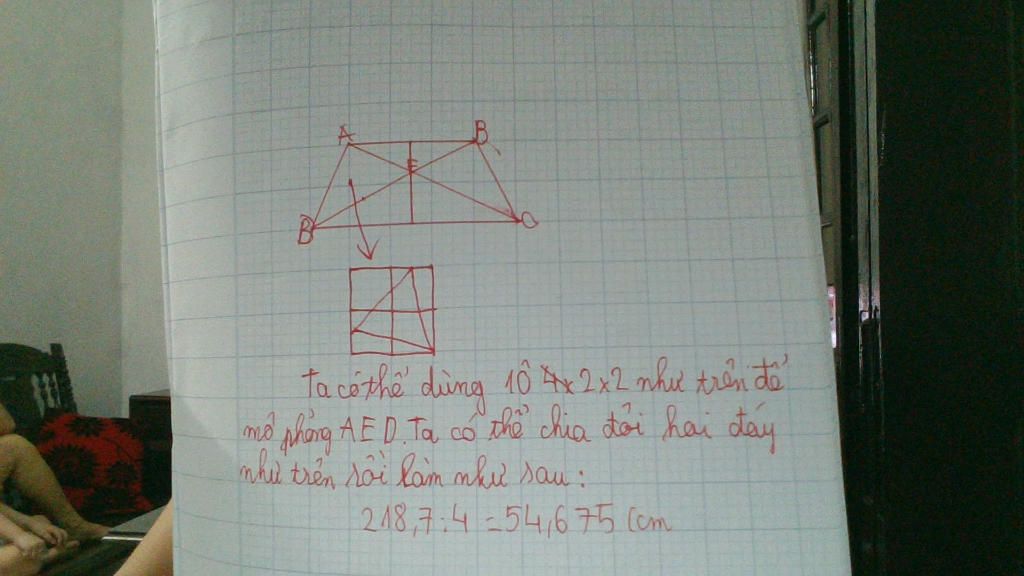 A B
E
B C
Ta có thể dùng 1 ô 4x2x2 như trên để
mô phỏng AED. Ta có thể chia đôi hai đáy
như trên rồi làm như sau:
218,7:4=54,675 (cm